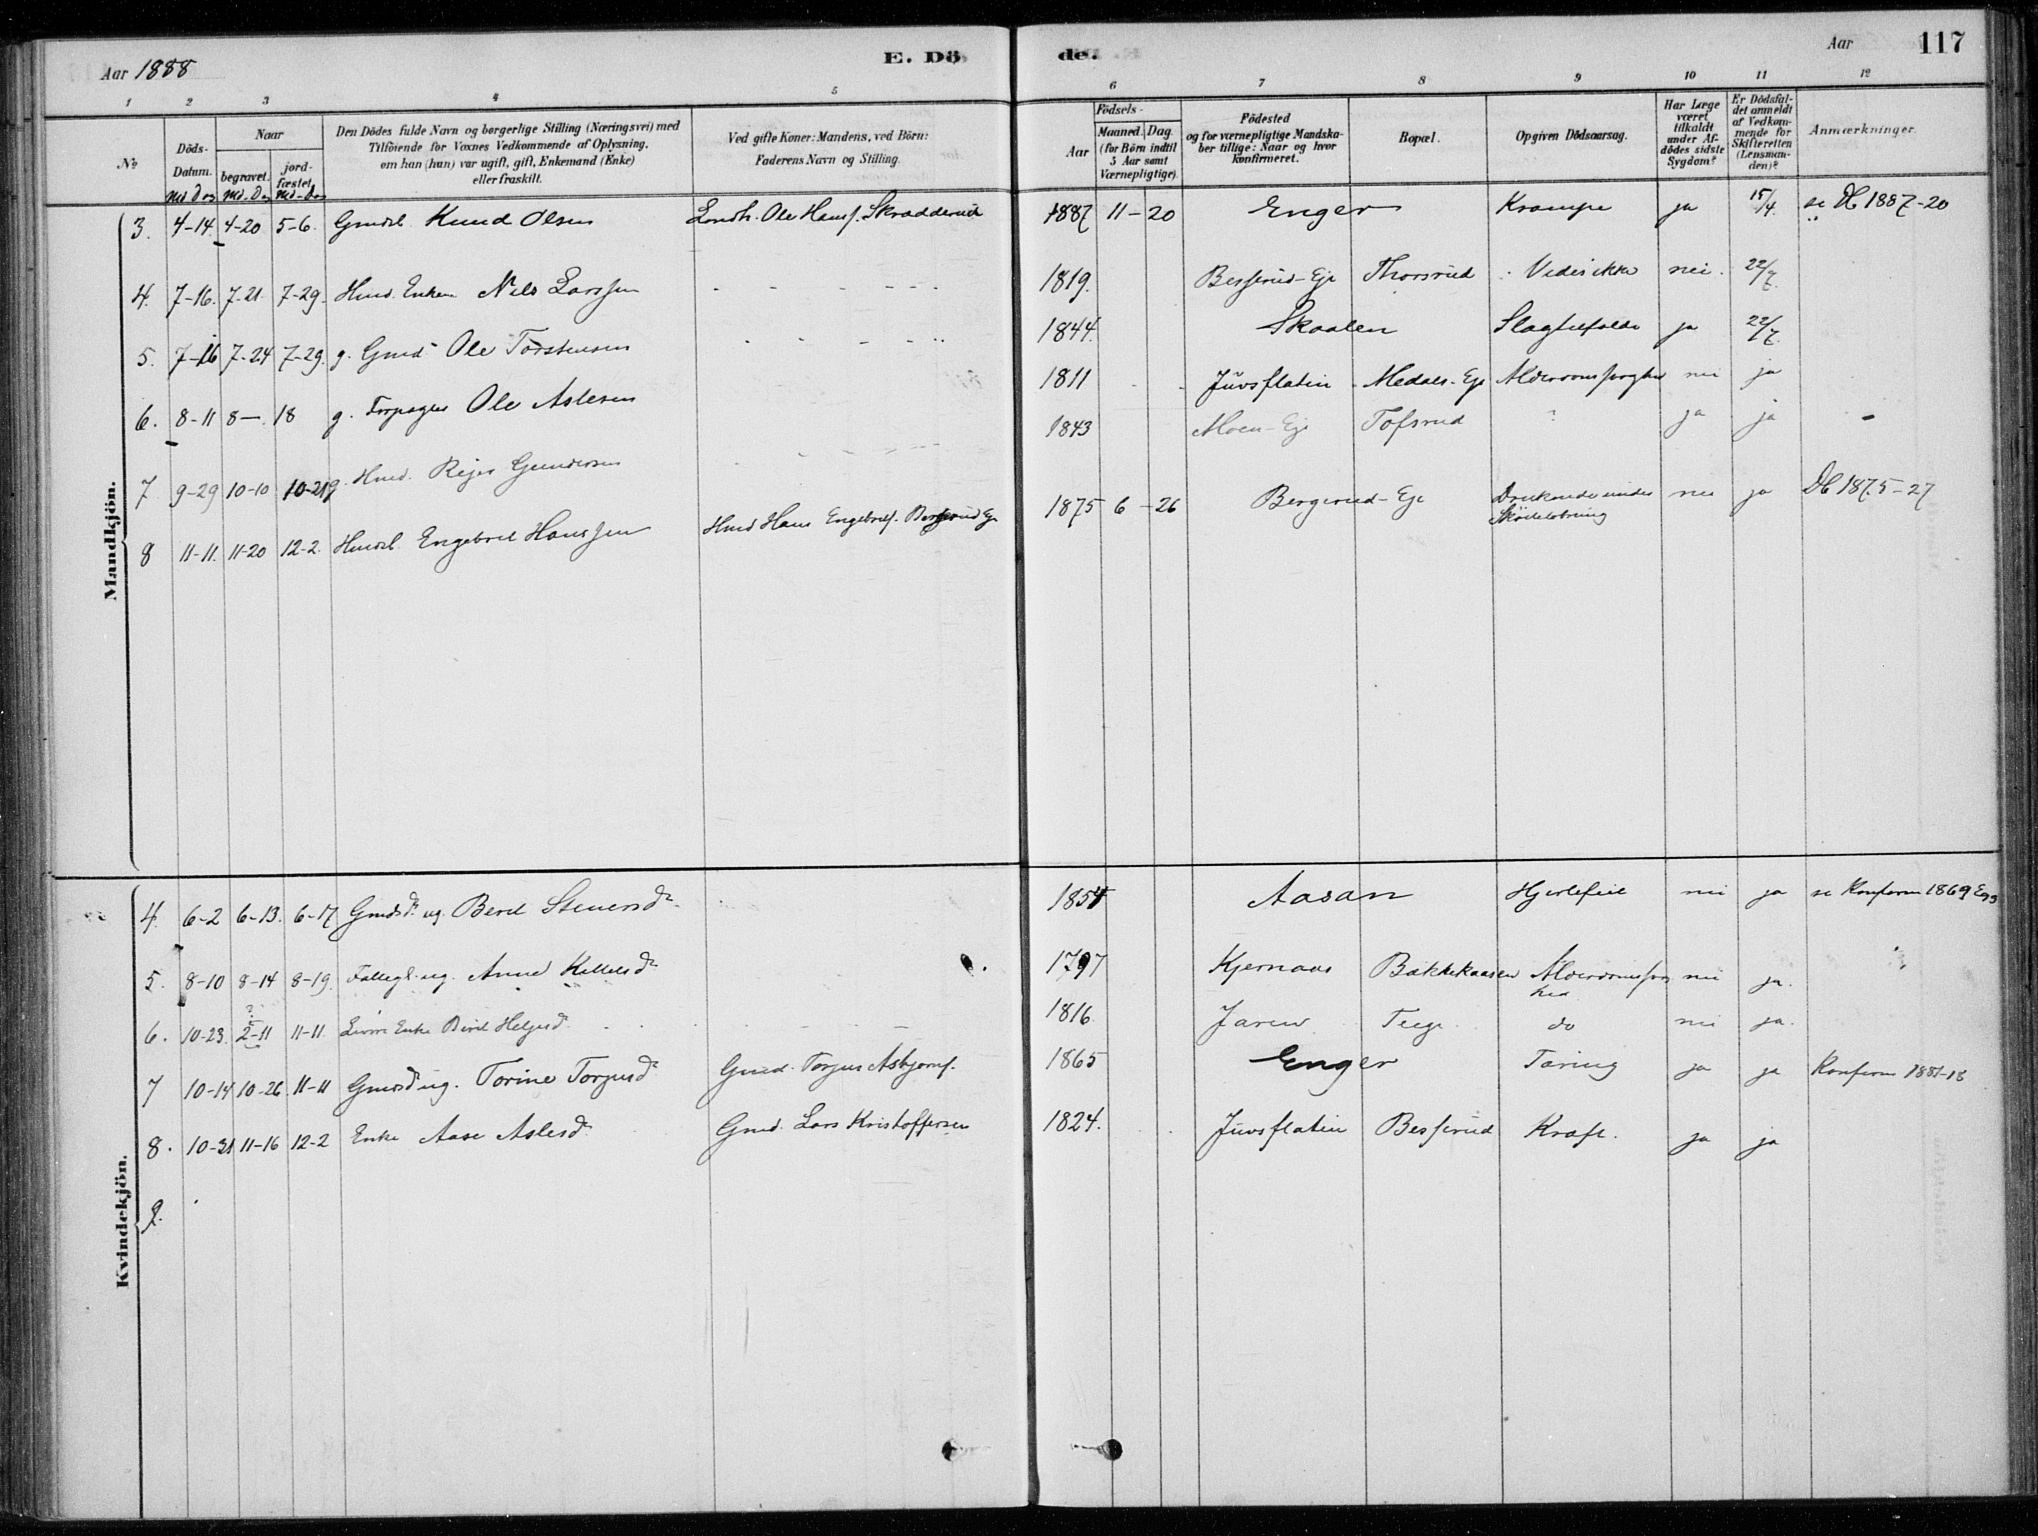 Aar 1888
E. Dö
de.
Aar
117
1 2 3 4 5 6 7 8 9 10 11 12
No
Döds-Datum.
Md Dag
Naar
begravet.
Md. Dag
jord-fæstet.
Md-Dag
Den Dödes fulde Navn og borgerlige Stilling (Næringsvei) med
Tilföiende for Voxnes Vedkommende af Oplysning,
om han (hun) var ugift, gift, Enkemand (Enke)
eller fraskilt.
Ved gifte Koner: Mandens, ved Börn:
Faderens Navn og Stilling.
Födsels-
Aar
Maaned. Dag.
(for Börn indtil
5 Aar samt
Værnepligtige)
Födested
og for værnepligtige Mandska-
ber tillige: Naar og hvor
konfirmeret.
Bopæl.
Opgiven Dödsaarsag.
Har Læge
været
tilkaldt
under Af-
dödes sidste
Sygdom?
Er Dödsfal-
det anmeldt
af Vedkom-
mende for
Skifteretten
(Lensman-
den)?
Anmærkninger.
Mandkjön.
3. 4-14. 4-20 5-6. Gmdsl. Knud Olsen Ole Hans. Skradderud 1887 11-20 Enger Krampe ja 15/4. se Db 1887-20
4. 7-16. 7-21. 7-29. Husd. Enkem. Nels Larssen 1819. Besserud-Eje Thorsrud Vides ikke nei. 22/7.
5. 7-16 7-24 7-29. g. Gmd Ole Torstensen 1844. Skaalen Slagtilfælde ja 22/7.
6. 8-11 8- 18 g. Ole Aslesen 1811 Juvsflatin Medaas-Eje nei ja
7 9-29 10-10 10-21 g. Husd. Rejer Gundersen 1843 Moen-Eje Tofsrud ? ja ja -
8 11-11. 11-20 12-2. Husdsl. Engebret Hanssen Husd Hans Engebrets. Bergerud Eje 1875 6-26 Bergerud-Eje Druknede under Skøiteløbning nei ja Db 1875-27
Kvindekjön.
4. 6-2 6-13. 6-17. Gmdsd. ug. Beret Steners d. 1854 Aasan Hjertefeil nei ja se Konfirm 1869
5. 8-10 8-14 8-19. ug. Anne Kittels d. 1797 Kjernaas Bakkekaasen nei ja.
6. 10-23. ? 2-11 11-11. Enke Beret Helges d. 1816 Jaren Teige do nei ja.
7 10-14 10-26. 11-11 Gmdsd. ug. Torine Torjus d. Gmd. Torjus Asbjorns. 1865 Enger Tæring ja ja Konfirm 1881-18
8. 10-31 11-16 12-2 Enke Aase Asles d. Gmd. Lars Kristoffersen 1824. Juvsflatin Besserud Kræft. ja ja
9.